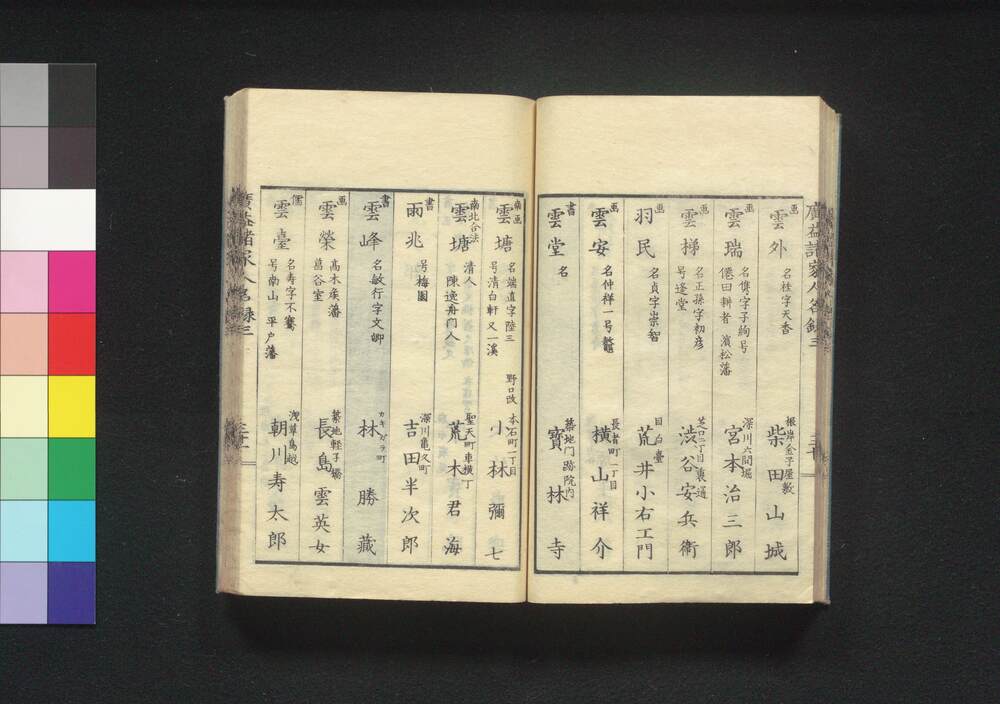 画
雲外
名桂字天香
根岸金子屋敷
柴田山城
画
雲瑞
名儁字子絢号
僊田耕者 濱松藩
深川六間堀
宮本治三郎
画
雲梯
名正孫字初彦
号逢堂
芝口二丁目裏通
渋谷安兵衛
羽民
名貞字崇智
目白臺
荒井小右工門
画
雲安
名仲祥一号
長者町一丁目
横山祥介
書
雲堂
名
築地門跡院内
寶林寺
画
雲塘
名端道字陸三
号清白軒又一溪
野口改
本石町一丁目
小林彌七
南北合法
雲塘
清人
陳逸舟門人
聖天町車横丁
荒木君海
書
雨兆
号梅園
深川亀久町
吉田半次郎
書
雲峰
名敏行字文卿
カキガラ町
林勝藏
画
雲榮
高木矦藩
葛谷室
築地軽子橋
長島雲英女
儒
雲臺
名寿字不騫
号南山 平戸藩
浅草鳥越
朝川寿太郎
廣益諸家人名録三